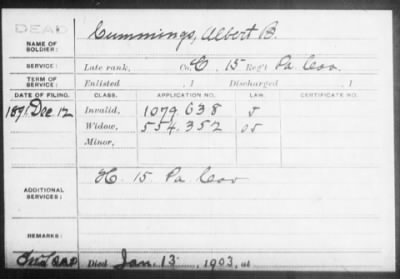 DEAD
NAME OF SOLDIER: Cummings, Albert B.
SERVICE: Late rank, Co. C. 15 Reg't Pa. Cav.
TERM OF SERVICE: Enlisted , 1 Discharged , 1
DATE OF FILING. CLASS. APPLICATION NO. LAW. CERTIFICATE NO.
1891, Dec. 12 Invalid, 1079.638
Widow, 554.352
Minor,
ADDITIONAL SERVICES: H. 15 Pa Cav
REMARKS:
Died Jan. 13, 1903, at